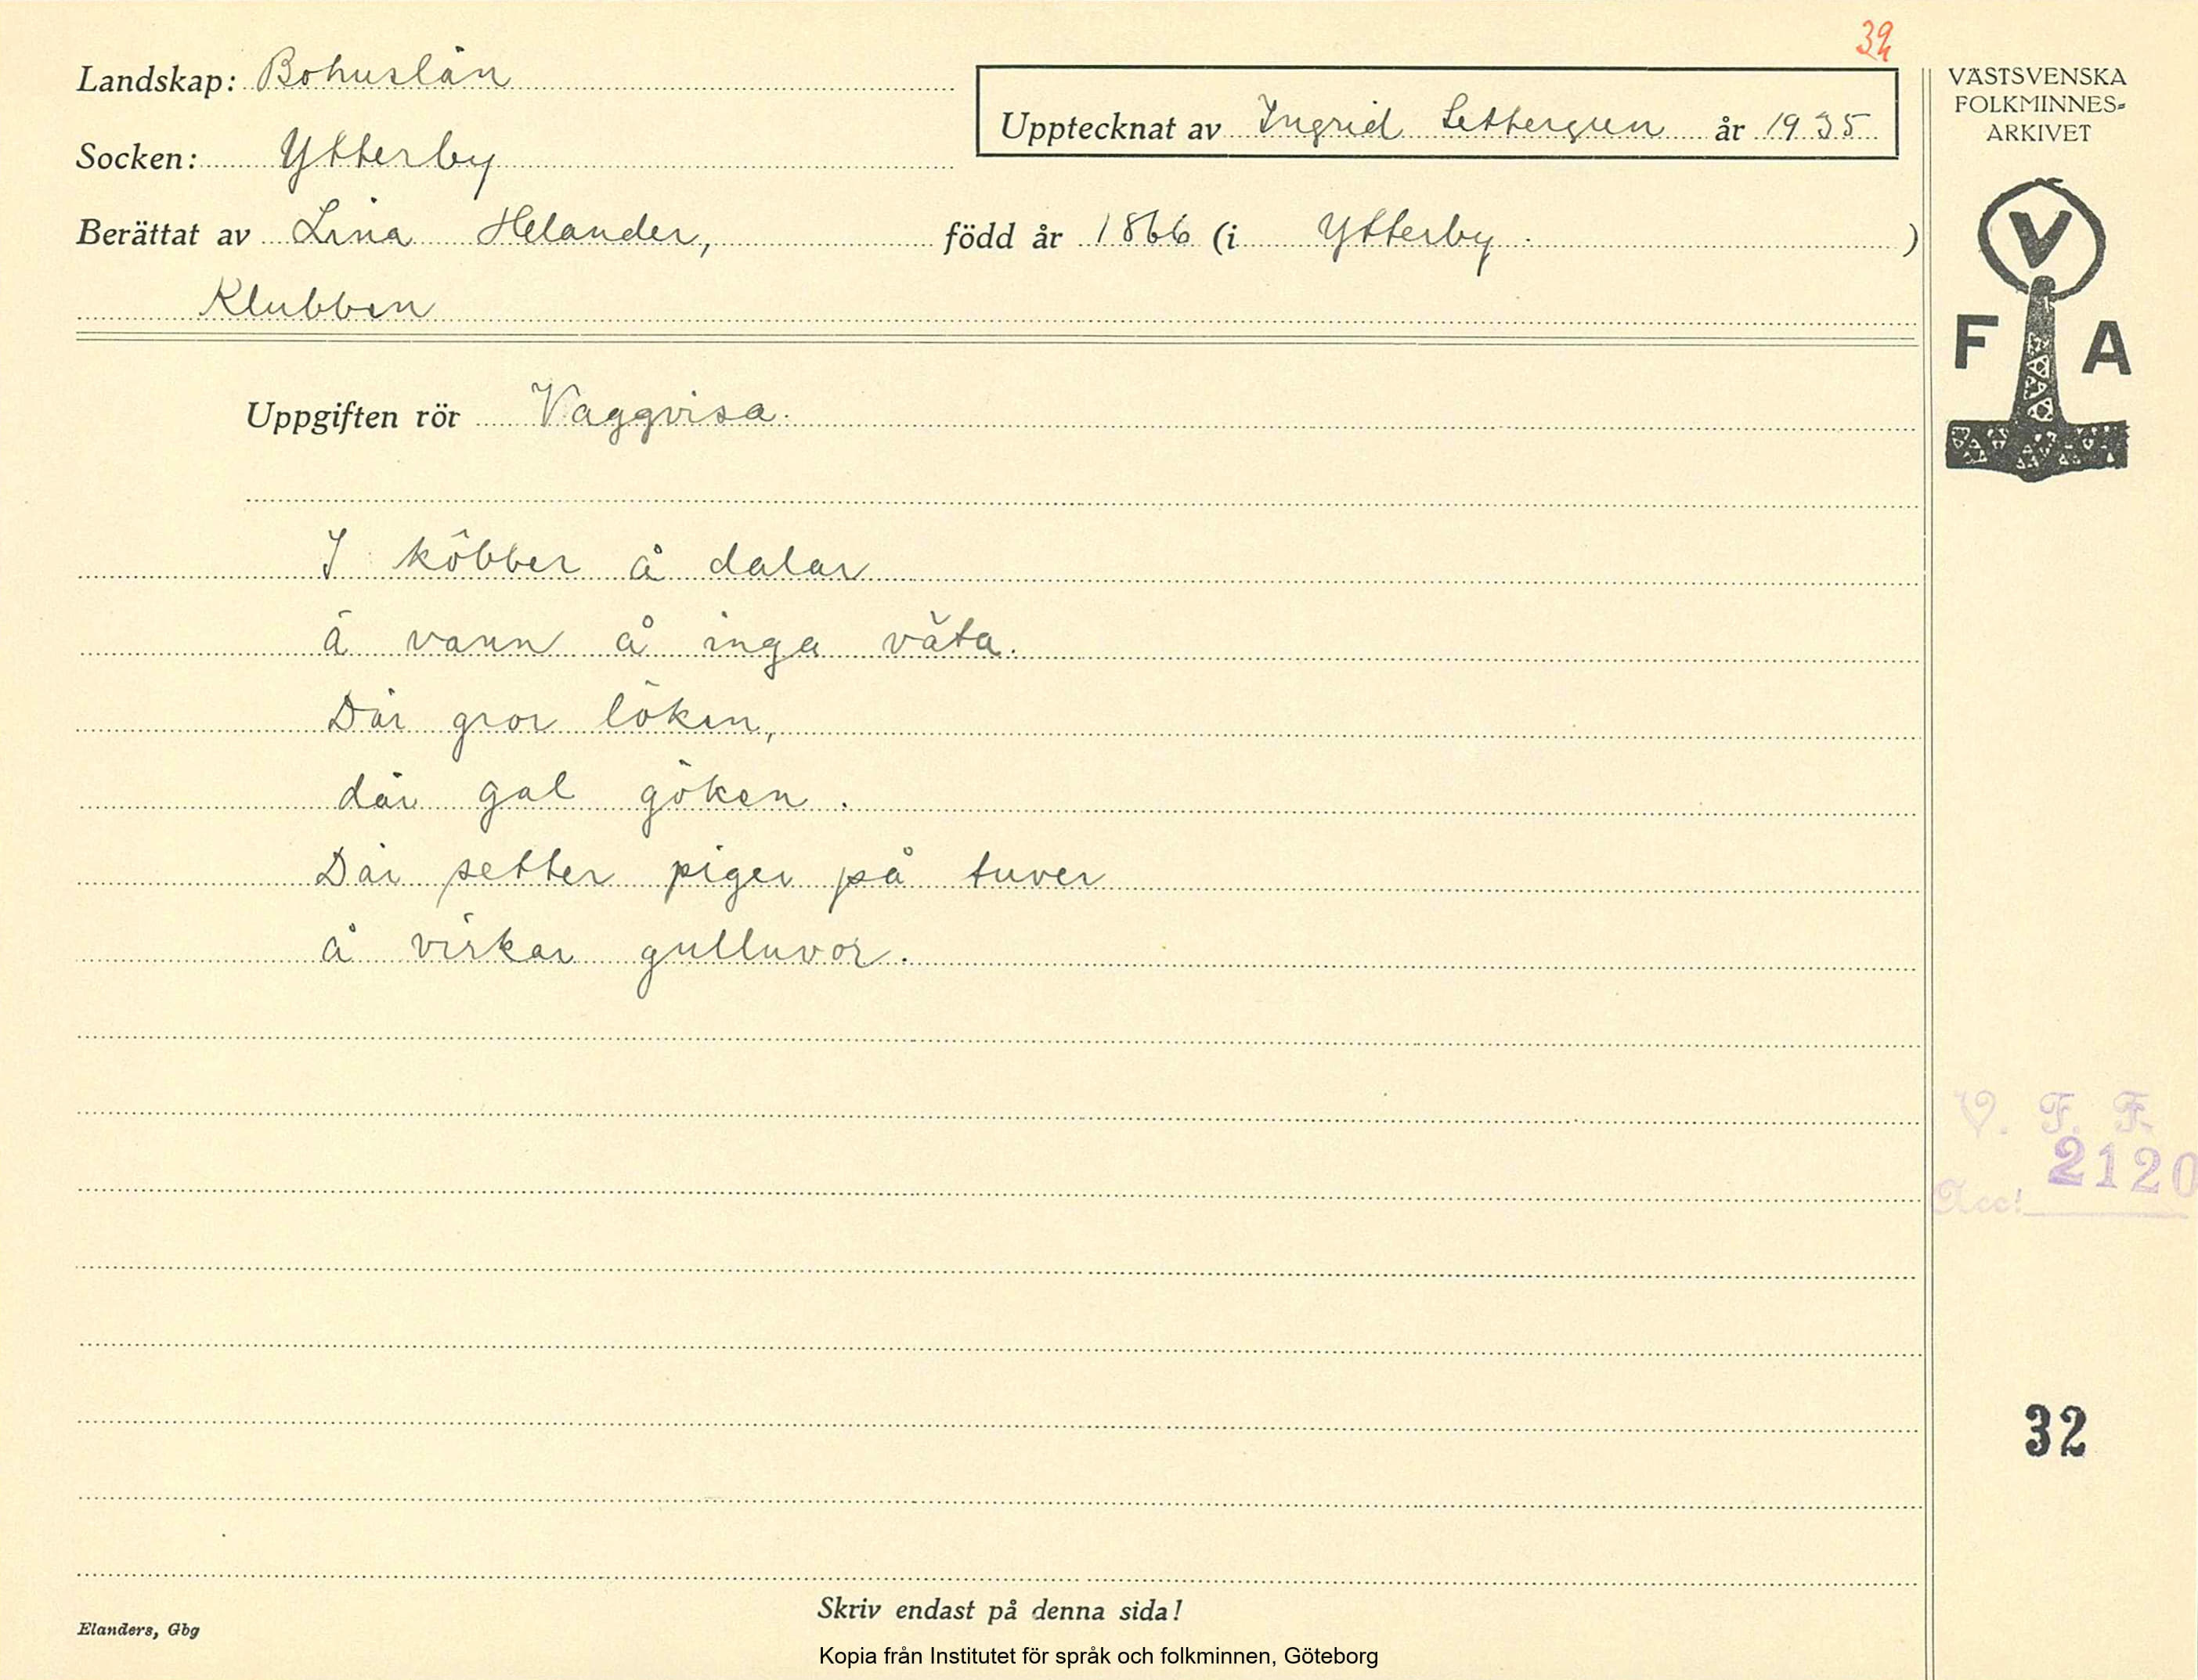 32
Landskap: Bohuslän
Upptecknat av Ingrid Settergren år 1935
Socken: Ytterby
Berättat av Lina Helander, född år 1866 (i Ytterby.)
Klubben
VÄSTSVENSKA
FOLKMINNES-
ARKIVET
V
F A
Uppgiften rör Vaggvisa.
I köbber å dalar
ä vann å inga väta.
Där gror löken,
där gal göken.
Där setter piger på tuver
å virkar gulluvor.
V. F. F.
2120
Acc:
32
Skriv endast på denna sida!
Elanders, Gbg
Kopia från Institutet för språk och folkminnen, Göteborg